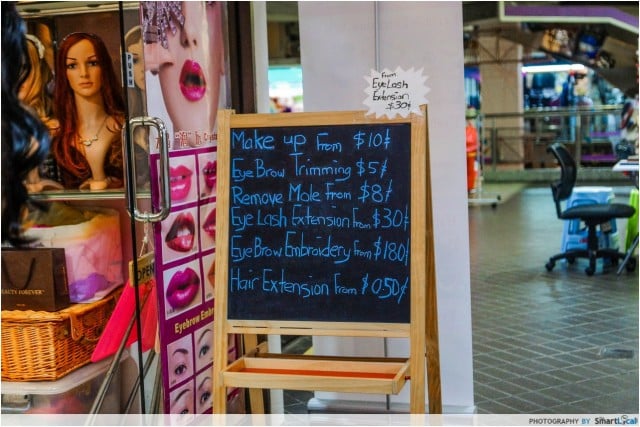 From
EyeLash
Extension
$30+
Make up From $10+
Eye Brow Trimming $5+
Remove Mole From $8+
Eye Lash Extension From $30+
Eye Brow Embroidery From $180+
Hair Extension From $0.50+
OPEN
Eyebrow Embr
EAUTY FOREVER
PHOTOGRAPHY BY SmartLocal